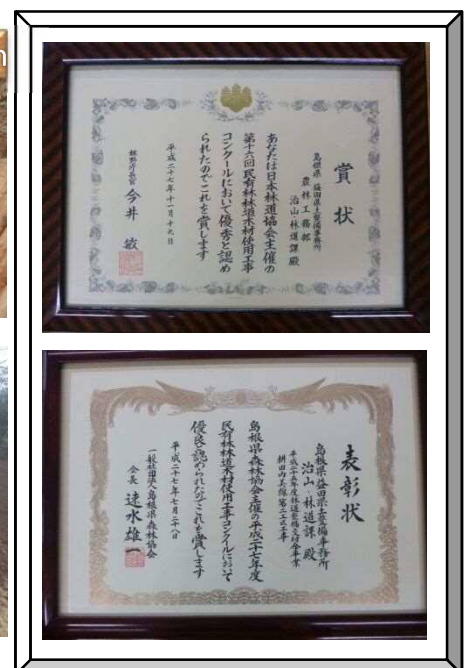 n
賞状
島根県 益田県土整備事務所
農林工務部
治山・林道課殿
あなたは日本林道協会主催の
第十六回民有林林道木材使用工事
コンクールにおいて優秀と認め
られたのでこれを賞します
平成二十七年十一月十九日
林野庁長官 今井 敏
表彰状
島根県益田県土整備事務所
治山・林道課殿
平成二十五年度林道整備交付金事業
島根県森林協会主催の平成二十七年度
民有林林道木材使用工事コンクールにおいて
優良と認められたのでこれを賞します
平成二十七年七月二十八日
一般社団法人島根県森林協会
会長 速水雄一